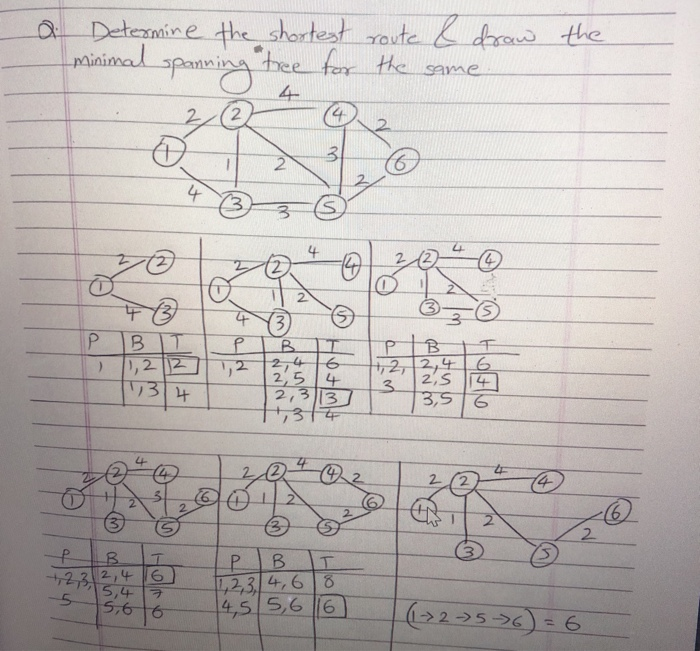 Q. Determine the shortest route & draw the
minimal spanning tree for the same
4
2 2 4 2
1 1 2 3 6
4 2
3 3 5
2 2 4 2 2 4 4 2 2 4 4
1 1 1 2 1 1 2
4 3 4 3 5 3 3 5
P B T P B T P B T
1 1,2 2 1,2 2,4 6 1,2, 2,4 6
1,3 4 2,5 4 3 2,5 4
2,3 3 3,5 6
1,3 4
2 2 4 4 2 2 4 4 2 2 2 4 4
1 1 2 3 2 6 1 1 2 2 6 1 1 2 2 6
3 5 3 5 3 5
P B T P B T
1,2,3, 2,4 6 1,2,3, 4,6 8
5 5,4 7 4,5 5,6 6
5,6 6
(1→2→5→6) = 6